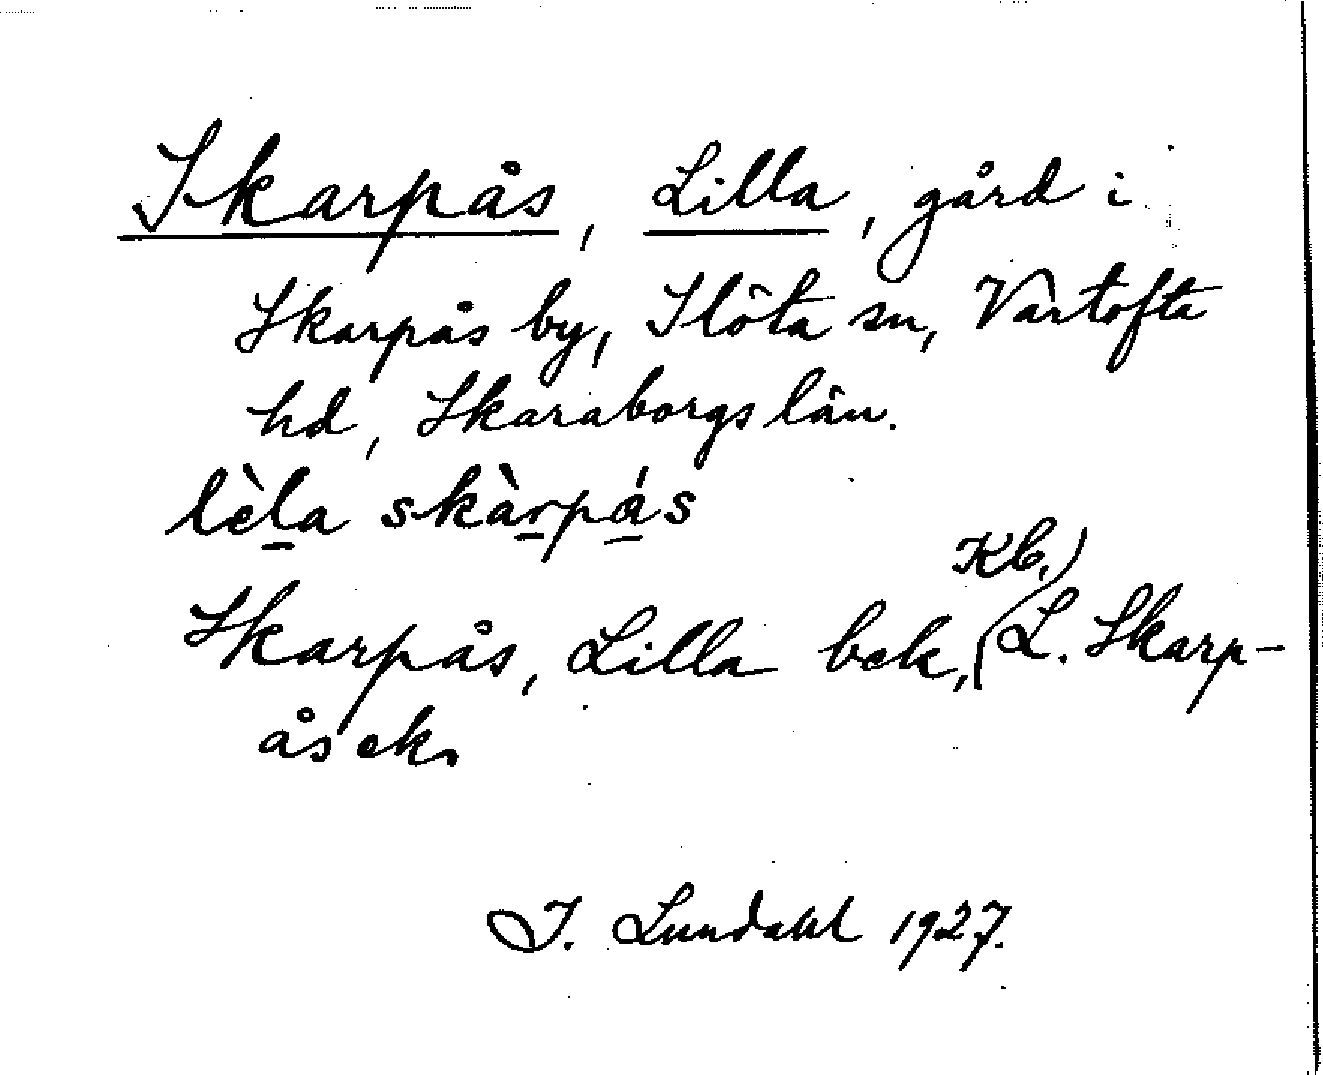 Skarpås, Lilla, gård i
Skarpås by, Slöta sn, Vartofta
hd, Skaraborgs län.
lèla skàrpás
Skarpås, Lilla bek, (L. Skarp-
Kb.)
ås ek.
I. Lundahl 1927.